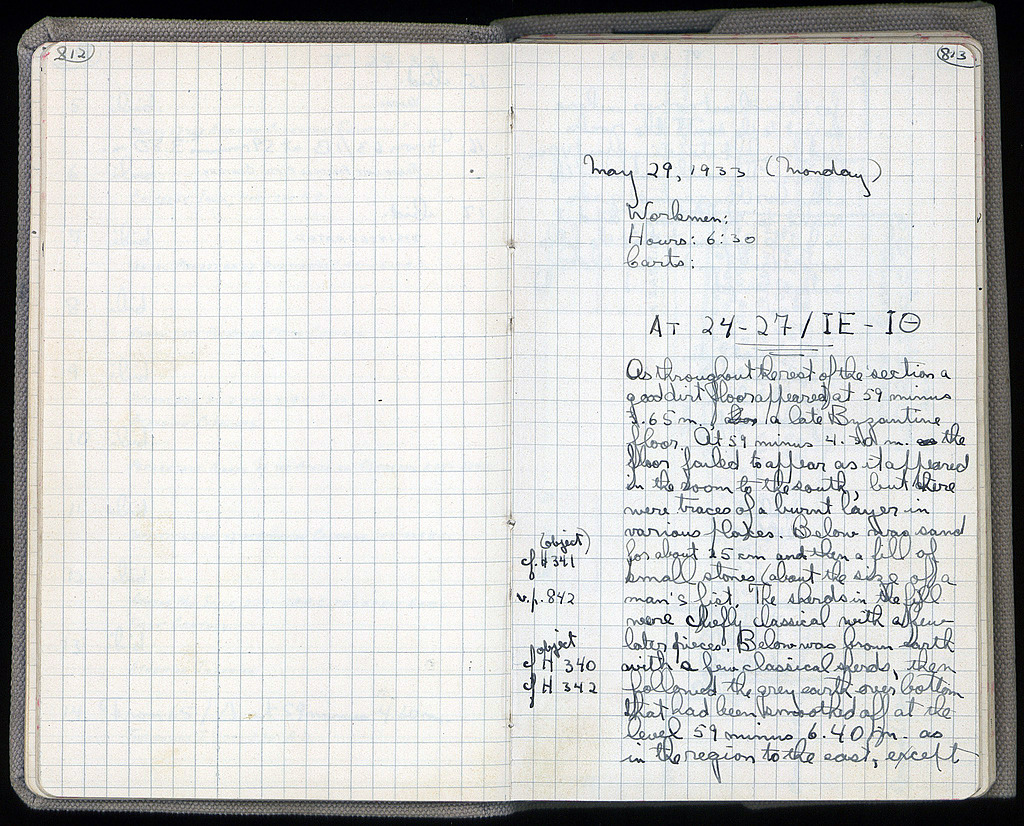 812
813
May 29, 1933 (Monday)
Workmen:
Hours: 6:30
Carts:
AT 24-27/IE-IΘ
As throughout the rest of the section a
good dirt floor appeared at 59 minus
3.65 m. / a late Byzantine
floor. At 59 minus m. the
floor failed to appear as it appeared
in the room to the south, but there
were traces of a burnt layer in
various places. Below was sand
for about 25 cm and then a fill of
small stones (about the size of a
man's fist. The sherds in the fill
were chiefly classical with a few
later pieces. Below was brown earth
with a few classical sherds, then
followed the grey earth over bottom
that had been smoothed off at the
level 59 minus 6.40 m. as
in the region to the east, except
(object)
cf. H 341
v.p. 842
object
cf H 340
cf H 342